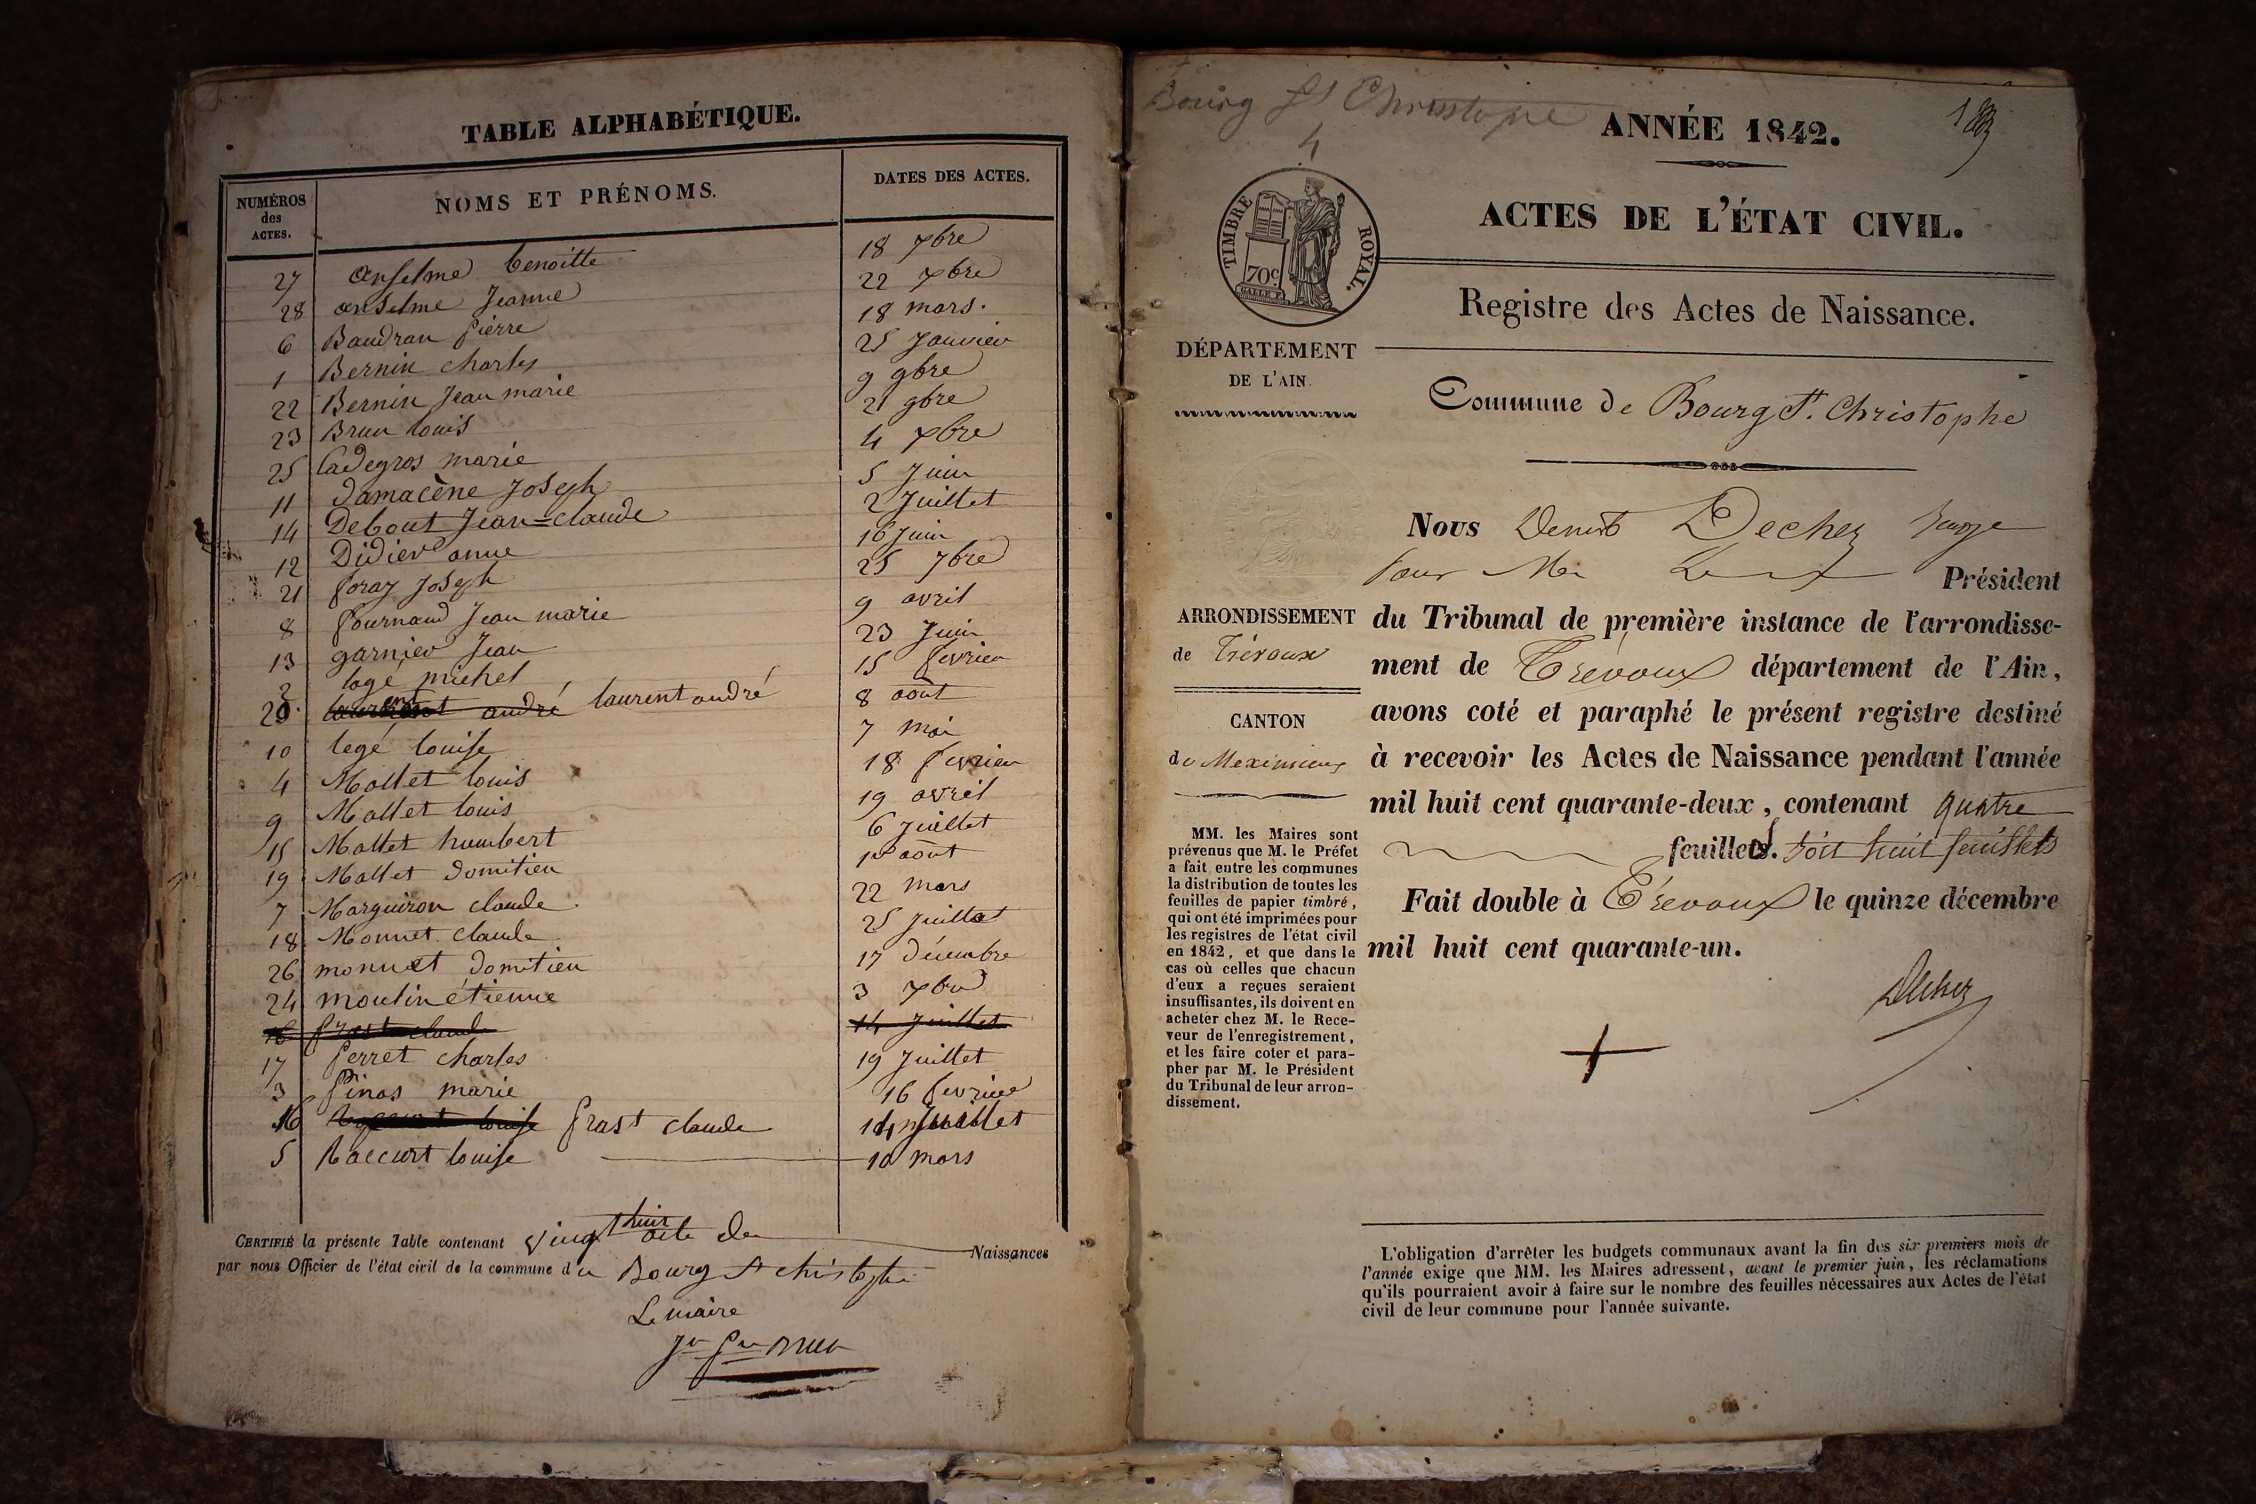 TABLE ALPHABÉTIQUE.
NUMÉROS des ACTES. NOMS ET PRÉNOMS. DATES DES ACTES.
27 anselme benoitte 18 xbre
28 anselme Jeanne 22 xbre
6 Baudran pierre 18 mars.
1 Bernin charles 25 Janvier
22 Bernin Jean marie 9 9bre
23 Brun louis 21 9bre
25 Cadegros marie 4 xbre
11 Damacène Joseph 5 Juin
14 Debout Jean=claude 2 Juillet
12 Didier anne 16 Juin
21 foray Joseph 25 7bre
8 fournand Jean marie 9 avril
13 garnier Jean 23 Juin
2 logé michel 15 fevrier
20 andré laurent andré 8 août
10 legé louise 7 mai
4 Mollet louis 18 fevrier
9 Mollet louis 19 avril
15 Mollet humbert 6 Juillet
19 Mollet domitien 1er août
7 Marguiron claude 22 mars
18 Monnet claude 25 Juillet
26 monnet domitien 17 décembre
24 moulin étienne 3 xbre
16 prost claude 14 Juillet
17 perret charles 19 Juillet
3 pinos marie 16 fevrier
16 louise prost claude 14 Juillet
5 Raccurt louise 10 mars
CERTIFIÉ la présente Table contenant vingt huit acte de Naissances
par nous Officier de l'état civil de la commune de Bourg St christophe
Le maire
Bourg St Christophe
4
ANNÉE 1842.
ACTES DE L'ÉTAT CIVIL.
TIMBRE ROYAL.
70c.
Registre des Actes de Naissance.
DÉPARTEMENT
DE L'AIN.
Commune de Bourg St. Christophe
ARRONDISSEMENT
de Trévoux
CANTON
de Meximieux
MM. les Maires sont
prévenus que M. le Préfet
a fait entre les communes
la distribution de toutes les
feuilles de papier timbré,
qui ont été imprimées pour
les registres de l'état civil
en 1842, et que dans le
cas où celles que chacun
d'eux a reçues seraient
insuffisantes, ils doivent en
acheter chez M. le Rece-
veur de l'enregistrement,
et les faire coter et para-
pher par M. le Président
du Tribunal de leur arron-
dissement.
Nous Dechez Juge
pour Mr Le Président
du Tribunal de première instance de l'arrondisse-
ment de Trévoux département de l'Ain,
avons coté et paraphé le présent registre destiné
à recevoir les Actes de Naissance pendant l'année
mil huit cent quarante-deux, contenant quatre
feuilles. soit huit feuillets
Fait double à Trévoux le quinze décembre
mil huit cent quarante-un.
Dechez
L'obligation d'arrêter les budgets communaux avant la fin des six premiers mois de
l'année exige que MM. les Maires adressent, avant le premier juin, les réclamations
qu'ils pourraient avoir à faire sur le nombre des feuilles nécessaires aux Actes de l'état
civil de leur commune pour l'année suivante.